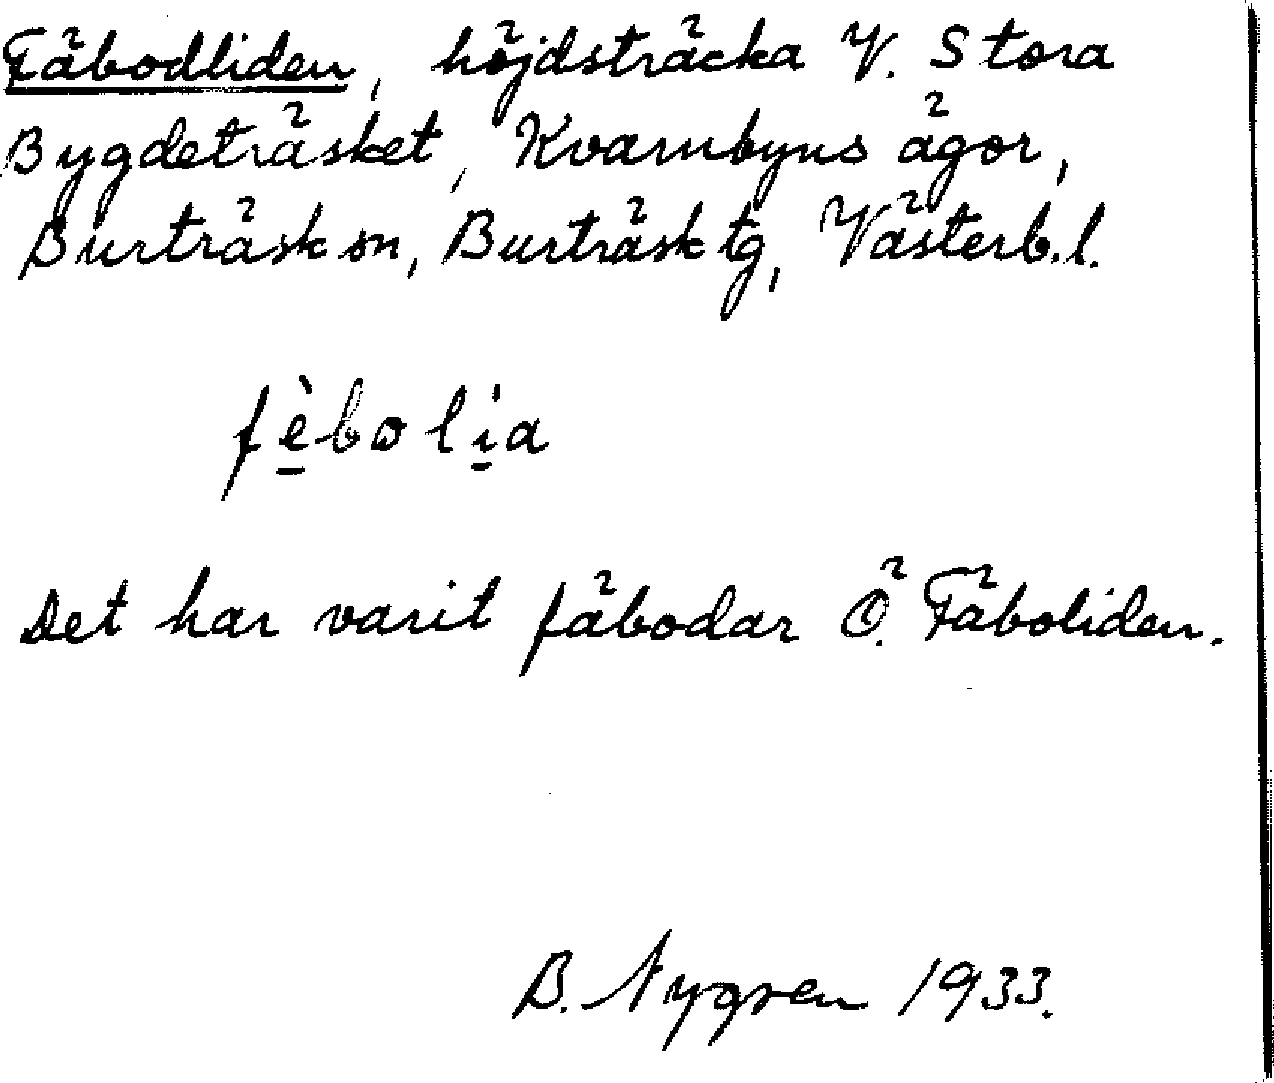 Fäbodliden, höjdsträcka V. Stora
Bygdeträsket, Kvarnbyns ägor,
Burträsk sn, Burträsk tg, Västerb. l.
fèbolìa
Det har varit fäbodar Ö. Fäboliden.
B. Nygren 1933.